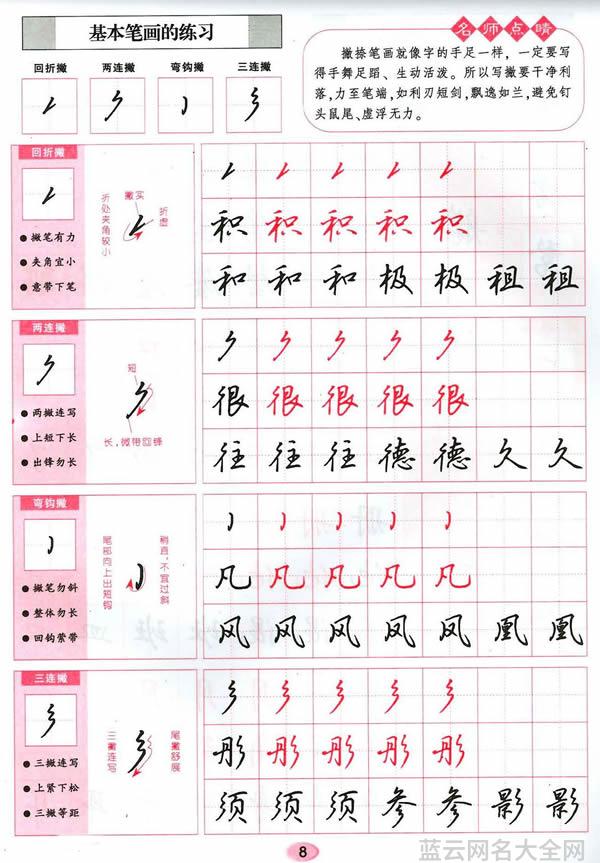 基本笔画的练习
名师点睛
撇捺笔画就像字的手足一样，一定要写
得手舞足蹈、生动活泼。所以写撇要干净利
落,力至笔端,如利刃短剑,飘逸如兰,避免钉
头鼠尾、虚浮无力。
回折撇 两连撇 弯钩撇 三连撇
回折撇
撇实
折虚
折处夹角较小
● 撇笔有力
● 夹角宜小
● 意带下笔
积 积 积 积 积
和 和 和 极 极 租 租
两连撇
短
长,微带回锋
● 两撇连写
● 上短下长
● 出锋勿长
很 很 很 很 很
往 往 往 德 德 久 久
弯钩撇
稍直,不宜过斜
尾部向上出短钩
● 撇笔勿斜
● 整体勿长
● 回钩萦带
凡 凡 凡 凡 凡
风 风 风 风 风 凰 凰
三连撇
三撇连写
尾撇舒展
● 三撇连写
● 上紧下松
● 三撇等距
彤 彤 彤 彤 彤
须 须 须 参 参 影 影
8
蓝云网名大全网